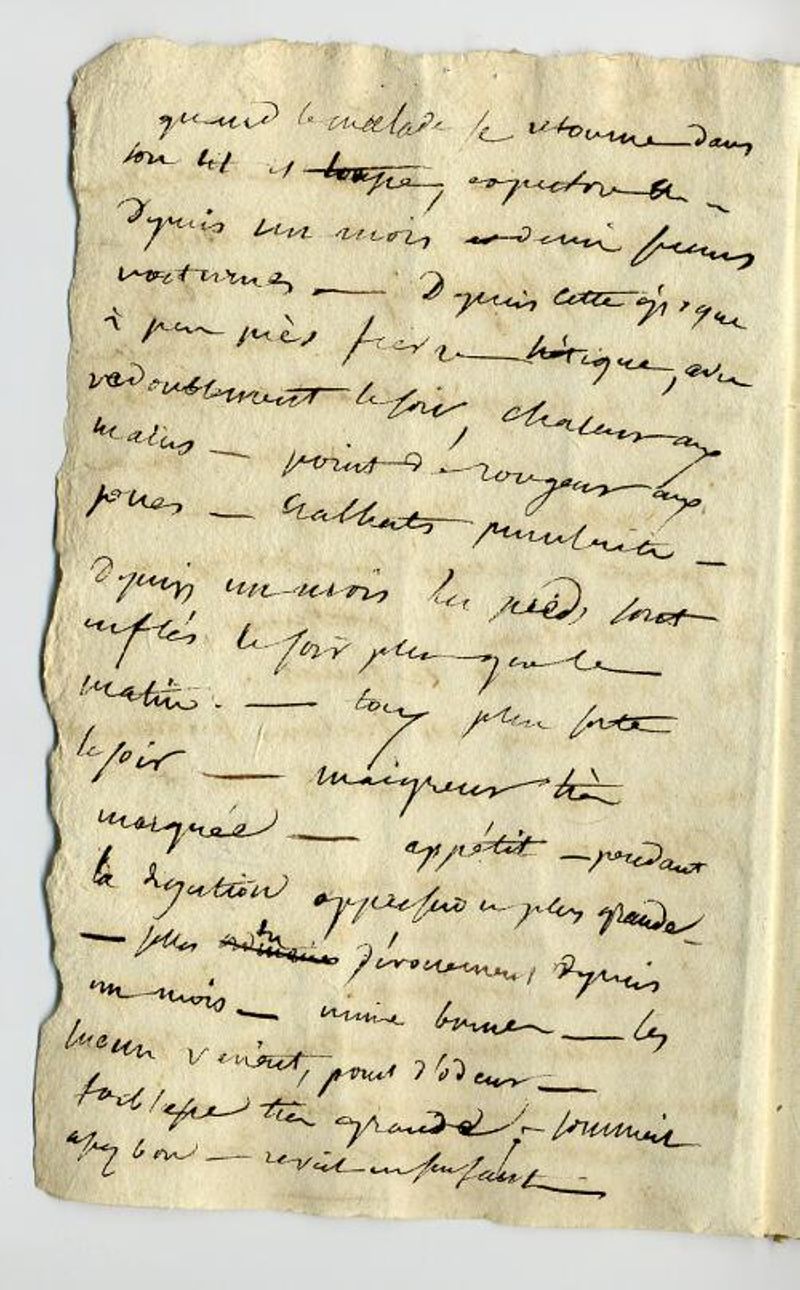 quand le malade se retourne dans
son lit il tousse, expectore
Depuis un mois et demi sueurs
nocturnes — Depuis cette époque
à peu près fièvre hétique, avec
redoublement le soir, chaleur aux
mains — point de rougeur aux
joues — Crachats purulents —
Depuis un mois les pieds sont
enflés le soir plus que le
matin. — toux plus forte
le soir — maigreur très
marquée — appétit — pendant
la digestion oppression plus grande —
— selles en dévouement depuis
un mois — urine — les
vienent, point d'odeur —
foiblesse très grande. — sommeil
assez bon —